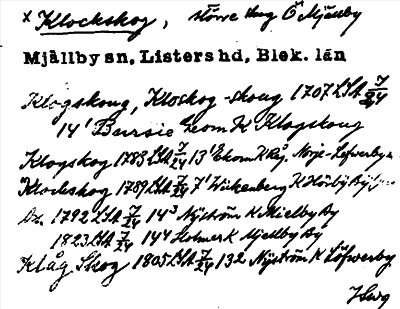 x Klockskog, större skog Ö Mjällby
Mjällby sn, Listers hd, Blek. län
Klogskoug, Kloskog-skoug 1707 LSA 7/24
14¹ Bursie Geom K Klogskoug
Klogskog 1783 LSA 7/24 13¹ Ekom K Räg. Norje-Löfwerby
Klockskog 1789 LSA 7/24 7¹ Wickenberg K Hörby By
Do. 1792 LSA 7/24 14³ Nyström K Mielby By
1823 LSA 7/24 14⁴ Holmer K Mjellby By
Klåg Skog 1805 LSA 7/24 13² Nyström K Löfwerby